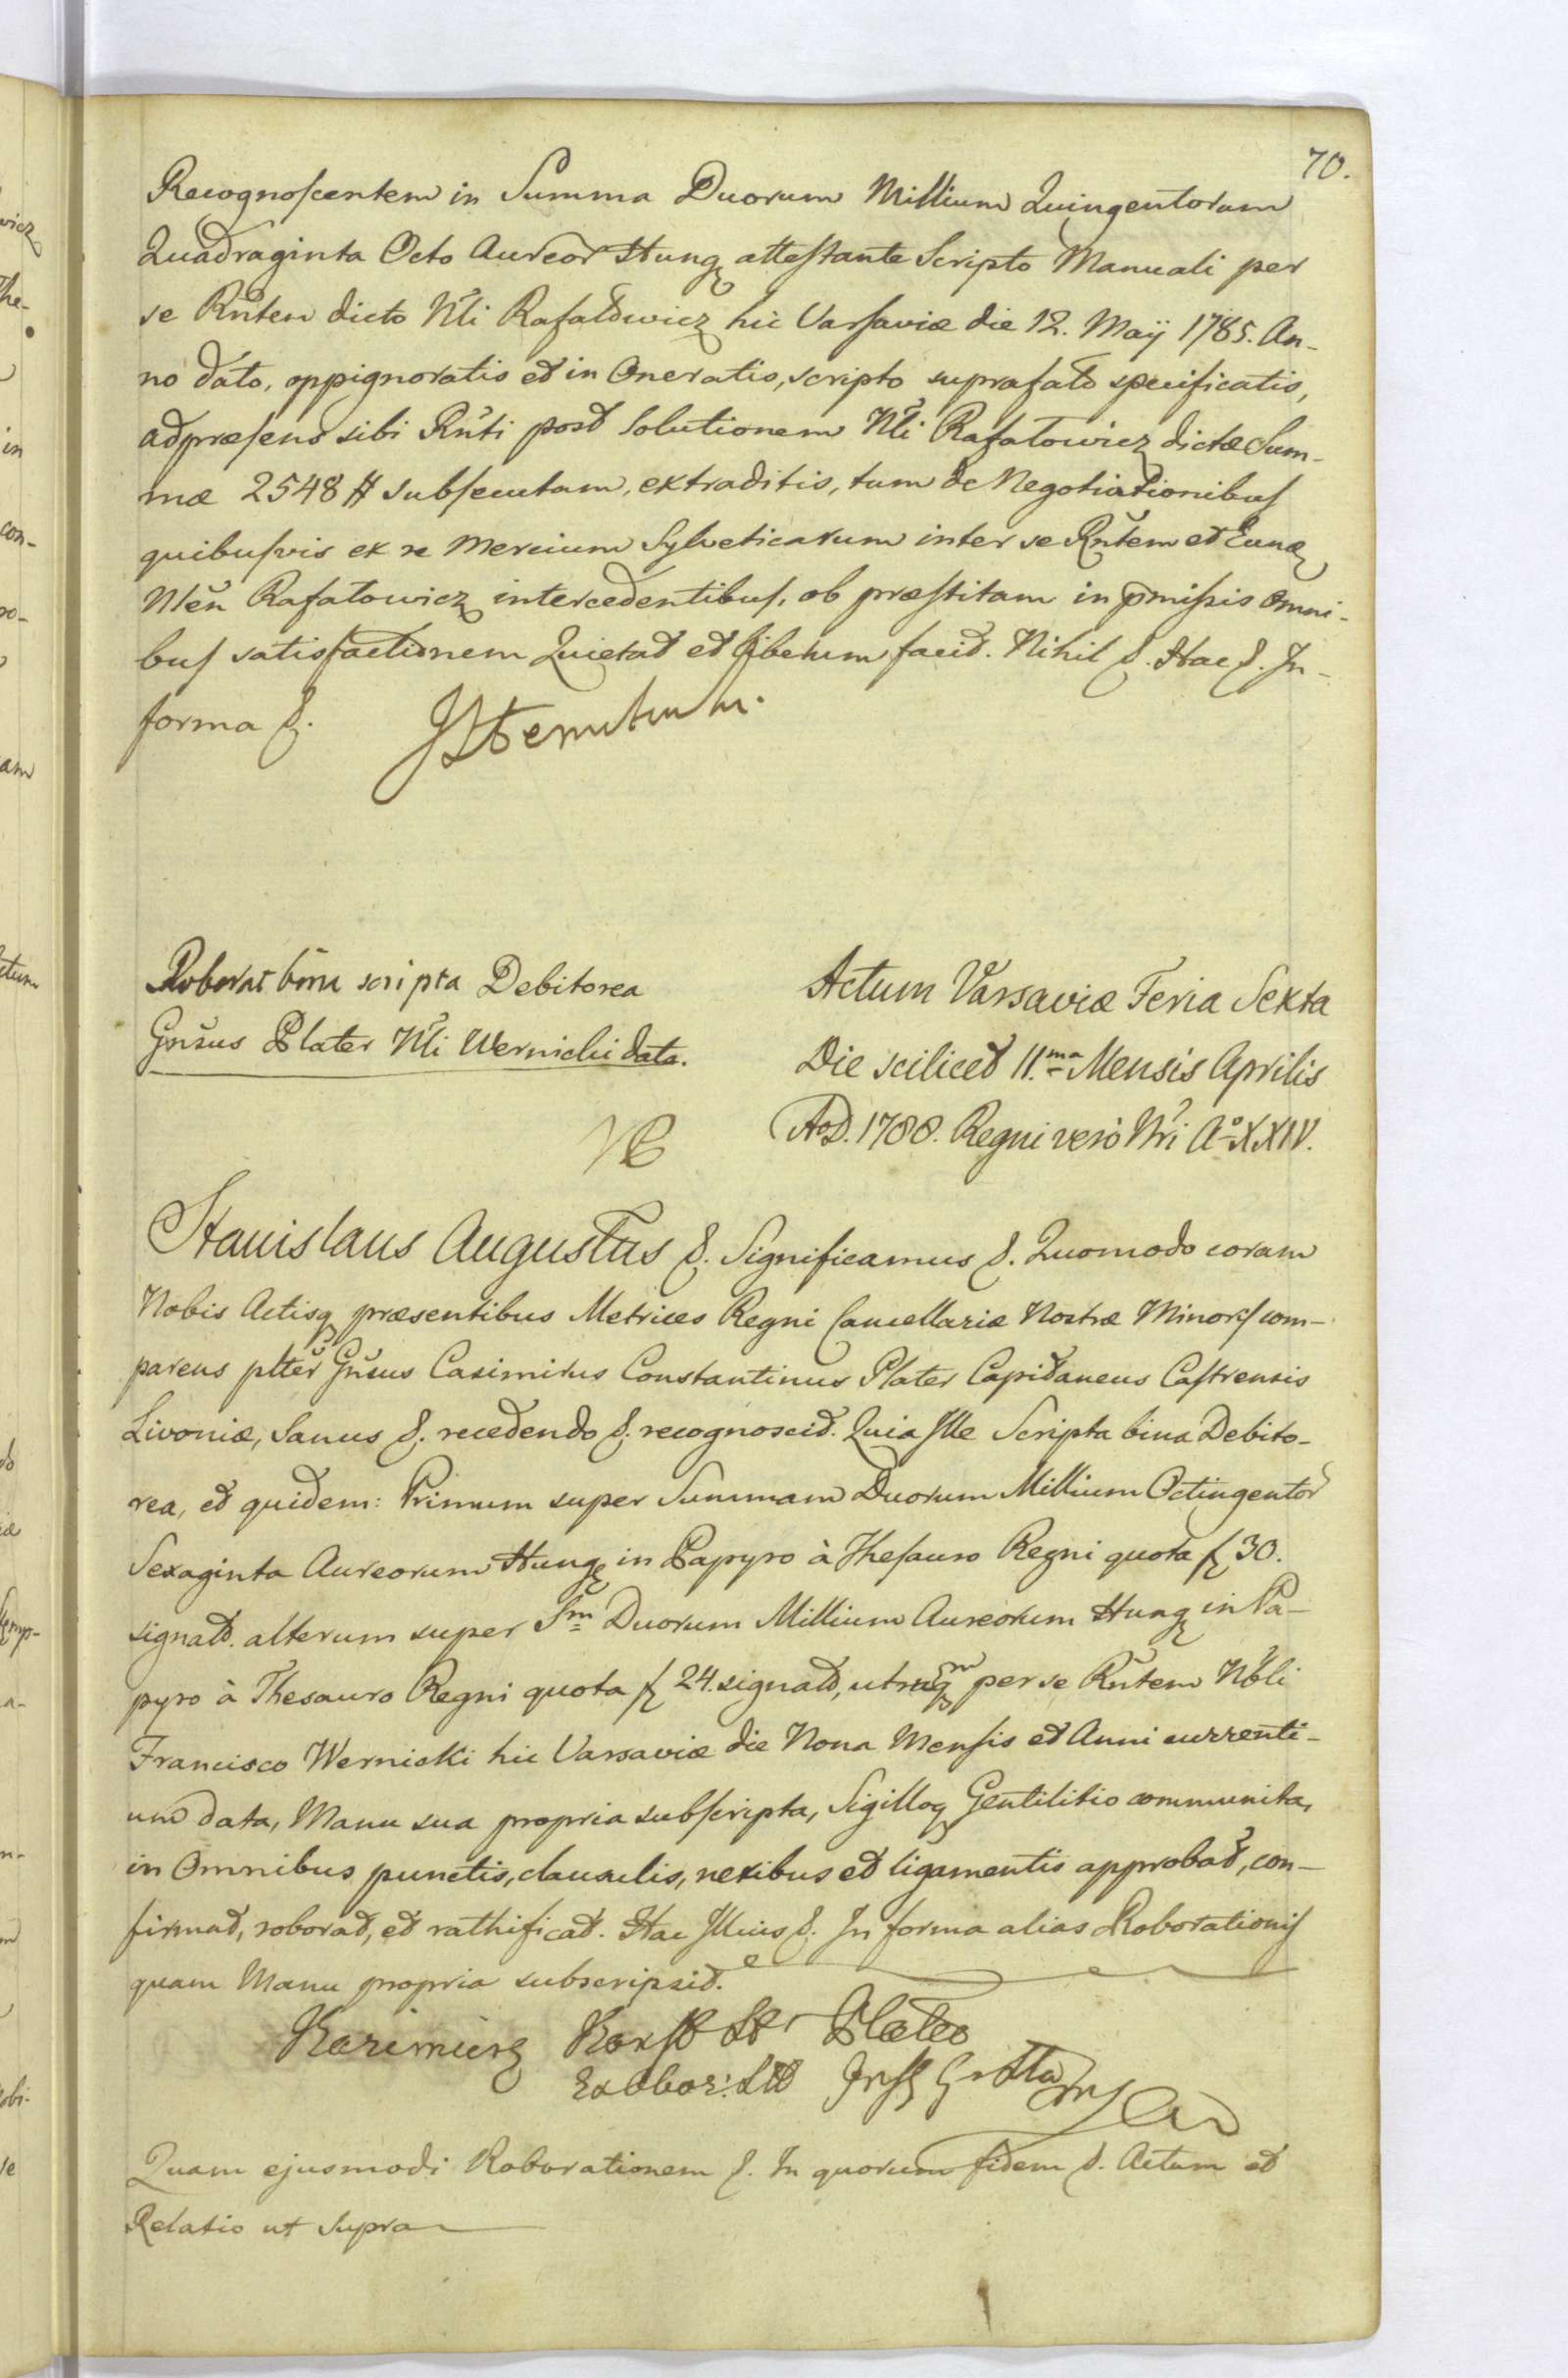 70.
Recognoscentem in Summa Duorum Millium Quingentorum
Quadraginta Octo Aureor Hung attestante Scripto Manuali per
se Rñtem dicto Nli Rafałowicz hic Varsaviæ die 12. Maÿ 1785. An-
no dato, oppignoratis et in Oneratis, scripto suprafato specificatis,
adpræsens sibi Rñti post Solutionem Nli Rafałowicz dictæ Sum-
mæ 2548 # subsecutam, extraditis, tum de Negotiationibus
quibusvis ex re Mercium Sylveticarum inter se Rñtem et Eunđ
Nlen Rafałowicz intercedentibus, ob præstitam in pmissis Omni-
bus satisfactionem Quietat et liberum facit. Nihil &. Hac &. In-
forma &.
Roborat bina scripta Debitorea
Gñsus Plater Nli Wernicki data.
Actum Varsaviæ Feria Sexta
Die scilicet 11.ma Mensis Aprilis
AoD. 1788. Regni verò Nri Ao XXIV.
Stanislaus Augustus &. Significamus &. Quomodo coram
Nobis Actisq præsentibus Metrices Regni Cancellariæ Nostræ Minoris com-
parens plter Gñsus Casimirus Constantinus Plater Capitaneus Castrensis
Livoniæ, Sanus &. recedendo &. recognoscit. Quia Ille Scripta bina Debito-
rea, et quidem: Primum super Summam Duorum Millium Octingentor
Sexaginta Aureorum Hung in Papyro à Thesauro Regni quota f 30.
signat. alterum super Sm Duorum Millium Aureorum Hung in Pa-
pyro à Thesauro Regni quota f 24. signat, utrumq per se Rñtem Nbli
Francisco Wernicki hic Varsaviæ die Nona Mensis et Anni currenti-
um data, Manu sua propria subscripta, Sigilloq Gentilitio communita,
in Omnibus punctis, clausulis, nexibus et ligamentis approbat, con-
firmat, roborat, et rathificat. Hac Illius &. In forma alias Roborationis
quam Manu propria subscripsit.
Kazimierz Konst Plater
Quam ejusmodi Roborationem &. In quorum fidem &. Actum et
Relatio ut Supra